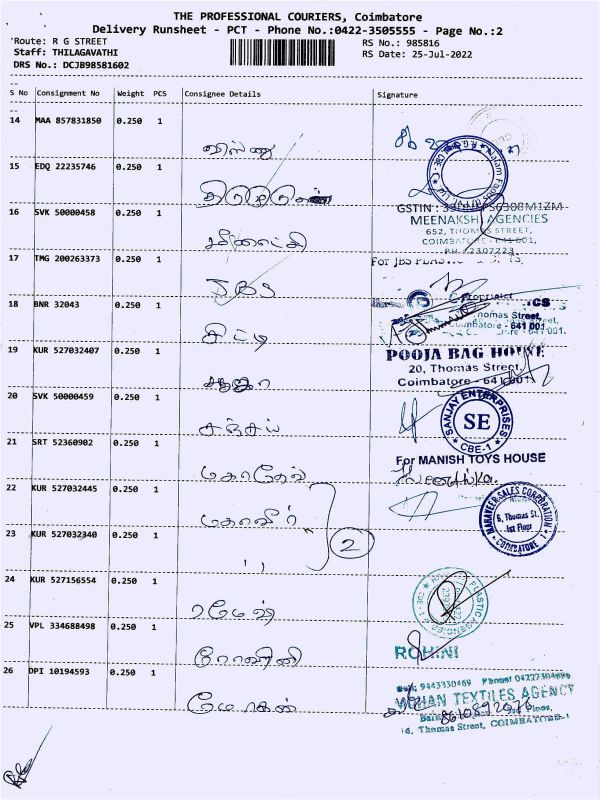 THE PROFESSIONAL COURIERS, Coimbatore
Delivery Runsheet - PCT - Phone No.:0422-3505555 - Page No.:2
Route: R G STREET
RS No.: 985816
Staff: THILAGAVATHI
RS Date: 25-Jul-2022
DRS No.: DCJB98581602
S No Consignment No Weight PCS Consignee Details Signature
14 MAA 857831850 0.250 1
விஸ்ணு
15 EDQ 22235746 0.250 1
GSTIN :
16 SVK 50000458 0.250 1
MEENAKSHI AGENCIES
652, THOMAS STREET,
COIMBATORE - 641 001,
மீனாட்சி
PH : 2307223
17 TMG 200263373 0.250 1
For JBS PLASTIC
JBS
18 BNR 32043 0.250 1
Thomas Street,
Coimbatore - 641 001.
சிட்டி
19 KUR 527032407 0.250 1
POOJA BAG HOUSE
20, Thomas Street,
Coimbatore - 641 001
பூஜா
20 SVK 50000459 0.250 1
SANJAY ENTERPRISES
SE
CBE-1
சஞ்சய்
21 SRT 52360902 0.250 1
For MANISH TOYS HOUSE
மகாதேவ்
22 KUR 527032445 0.250 1
MAHAVEER SALES CORPORATION
6, Thomas St.
1st Floor
COIMBATORE - 1
மகாவீர்
2
23 KUR 527032340 0.250 1
,,
24 KUR 527156554 0.250 1
PLASTIC AGENCIES
CBE-1
ரமேஷ்
25 VPL 334688498 0.250 1
ROHINI
ரோஹினி
26 DPI 10194593 0.250 1
Cell: 9443330469 Phone: 04222304896
MOHAN TEXTILES AGENCY
மோகன்
8610892076
16. Thomas Street, COIMBATORE-1.